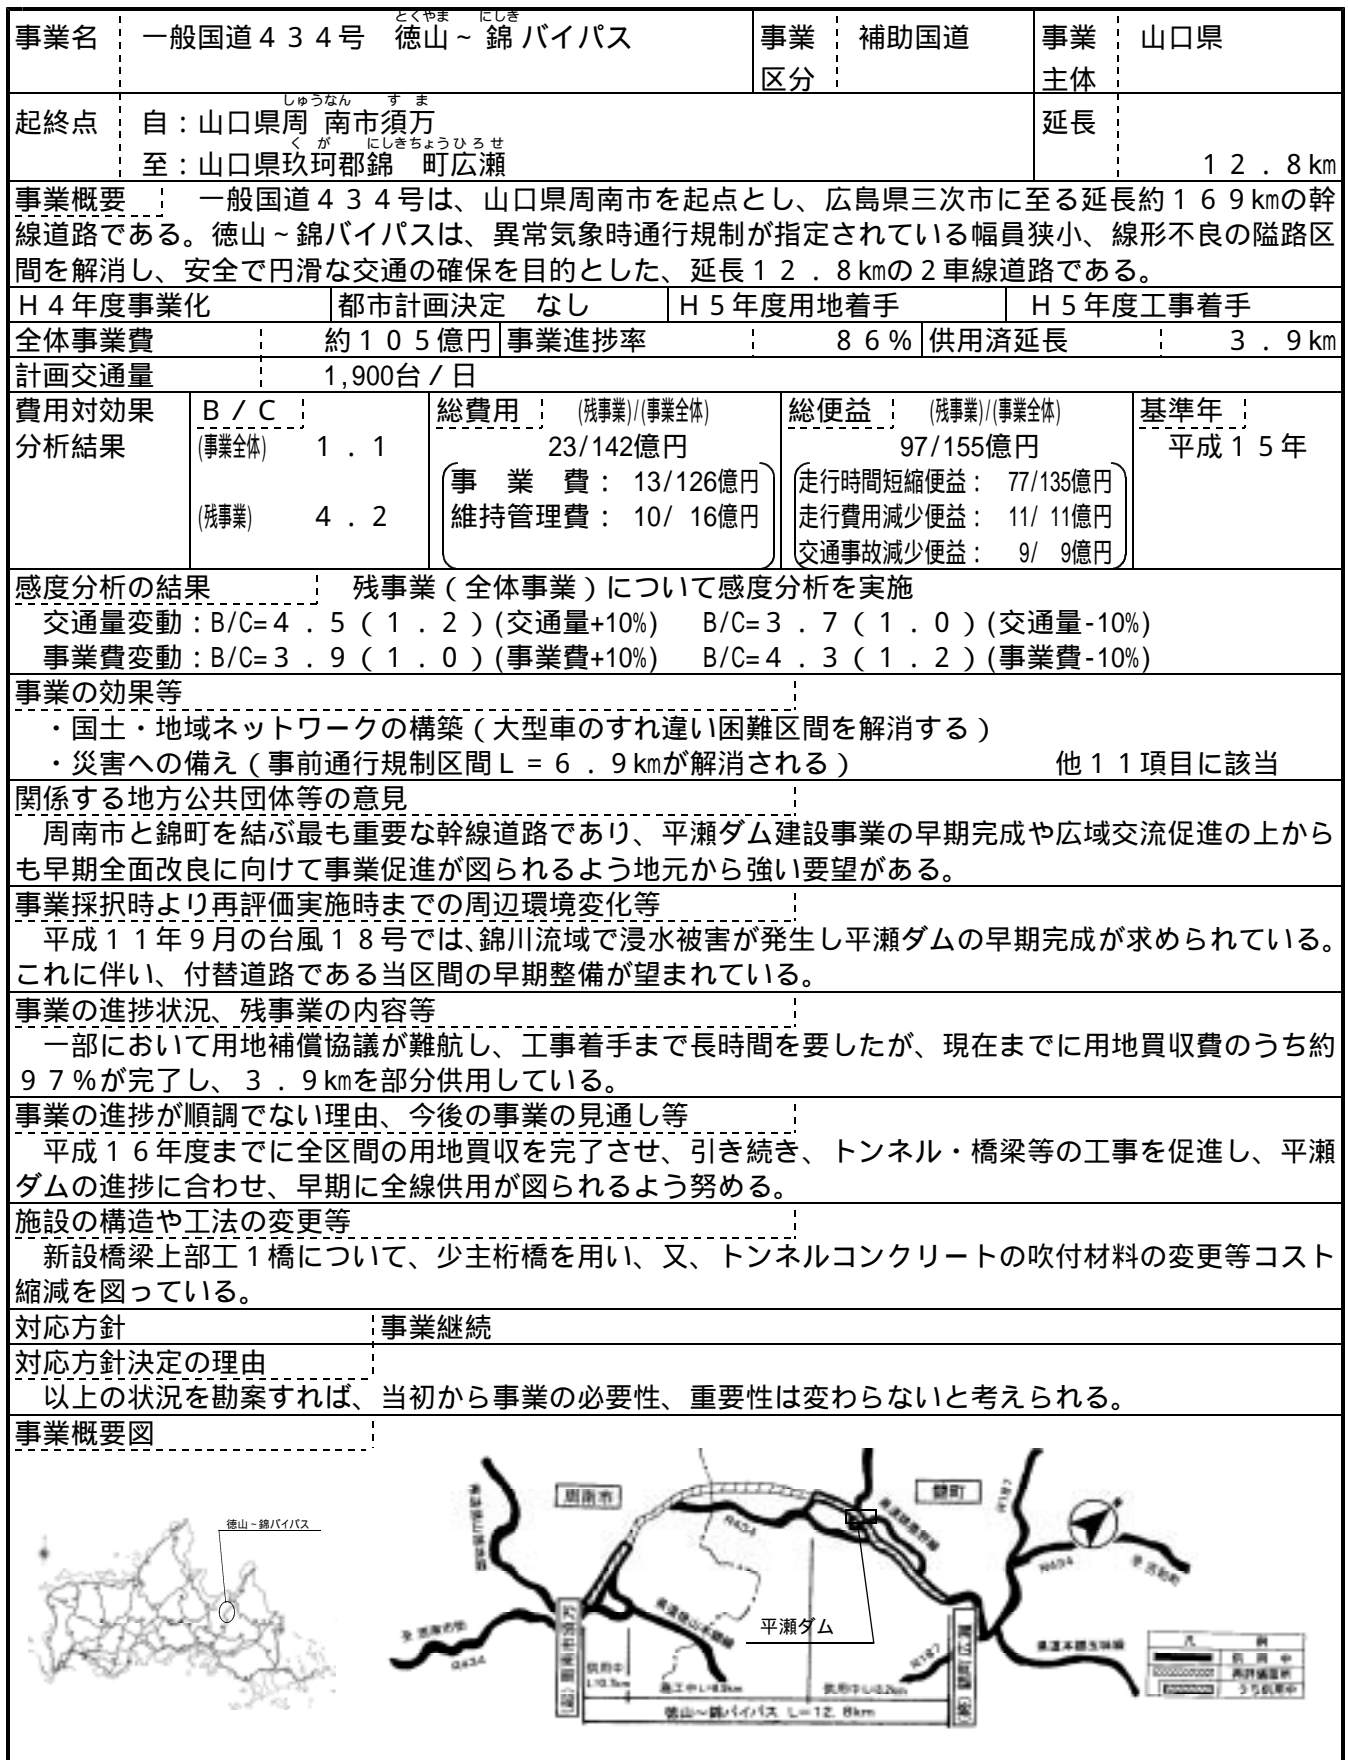 とくやま　にしき
事業名　一般国道４３４号　徳山～錦バイパス　事業　補助国道　事業　山口県
区分　主体
しゅうなん　すま
起終点　自：山口県周南市須万　延長
くが　にしきちょうひろせ
至：山口県玖珂郡錦町広瀬　１２．８㎞
事業概要　一般国道４３４号は、山口県周南市を起点とし、広島県三次市に至る延長約１６９㎞の幹
線道路である。徳山～錦バイパスは、異常気象時通行規制が指定されている幅員狭小、線形不良の隘路区
間を解消し、安全で円滑な交通の確保を目的とした、延長１２．８㎞の２車線道路である。
Ｈ４年度事業化　都市計画決定　なし　Ｈ５年度用地着手　Ｈ５年度工事着手
全体事業費　約１０５億円　事業進捗率　８６％　供用済延長　３．９㎞
計画交通量　1,900台／日
費用対効果　Ｂ／Ｃ　総費用　(残事業)/(事業全体)　総便益　(残事業)/(事業全体)　基準年
分析結果　(事業全体)　１．１　23/142億円　97/155億円　平成１５年
事　業　費：　13/126億円　走行時間短縮便益：　77/135億円
(残事業)　４．２　維持管理費：　10/ 16億円　走行費用減少便益：　11/ 11億円
交通事故減少便益：　9/　9億円
感度分析の結果　残事業（全体事業）について感度分析を実施
交通量変動：B/C=４．５（１．２）(交通量+10%)　B/C=３．７（１．０）(交通量-10%)
事業費変動：B/C=３．９（１．０）(事業費+10%)　B/C=４．３（１．２）(事業費-10%)
事業の効果等
・国土・地域ネットワークの構築（大型車のすれ違い困難区間を解消する）
・災害への備え（事前通行規制区間Ｌ＝６．９㎞が解消される）　他１１項目に該当
関係する地方公共団体等の意見
周南市と錦町を結ぶ最も重要な幹線道路であり、平瀬ダム建設事業の早期完成や広域交流促進の上から
も早期全面改良に向けて事業促進が図られるよう地元から強い要望がある。
事業採択時より再評価実施時までの周辺環境変化等
平成１１年９月の台風１８号では、錦川流域で浸水被害が発生し平瀬ダムの早期完成が求められている。
これに伴い、付替道路である当区間の早期整備が望まれている。
事業の進捗状況、残事業の内容等
一部において用地補償協議が難航し、工事着手まで長時間を要したが、現在までに用地買収費のうち約
９７％が完了し、３．９㎞を部分供用している。
事業の進捗が順調でない理由、今後の事業の見通し等
平成１６年度までに全区間の用地買収を完了させ、引き続き、トンネル・橋梁等の工事を促進し、平瀬
ダムの進捗に合わせ、早期に全線供用が図られるよう努める。
施設の構造や工法の変更等
新設橋梁上部工１橋について、少主桁橋を用い、又、トンネルコンクリートの吹付材料の変更等コスト
縮減を図っている。
対応方針　事業継続
対応方針決定の理由
以上の状況を勘案すれば、当初から事業の必要性、重要性は変わらないと考えられる。
事業概要図
徳山～錦バイパス
周南市
錦町
R434
R434
平瀬ダム
R434
R187
供用中
凡　例
供用中
徳山～錦バイパス　L＝12.8km